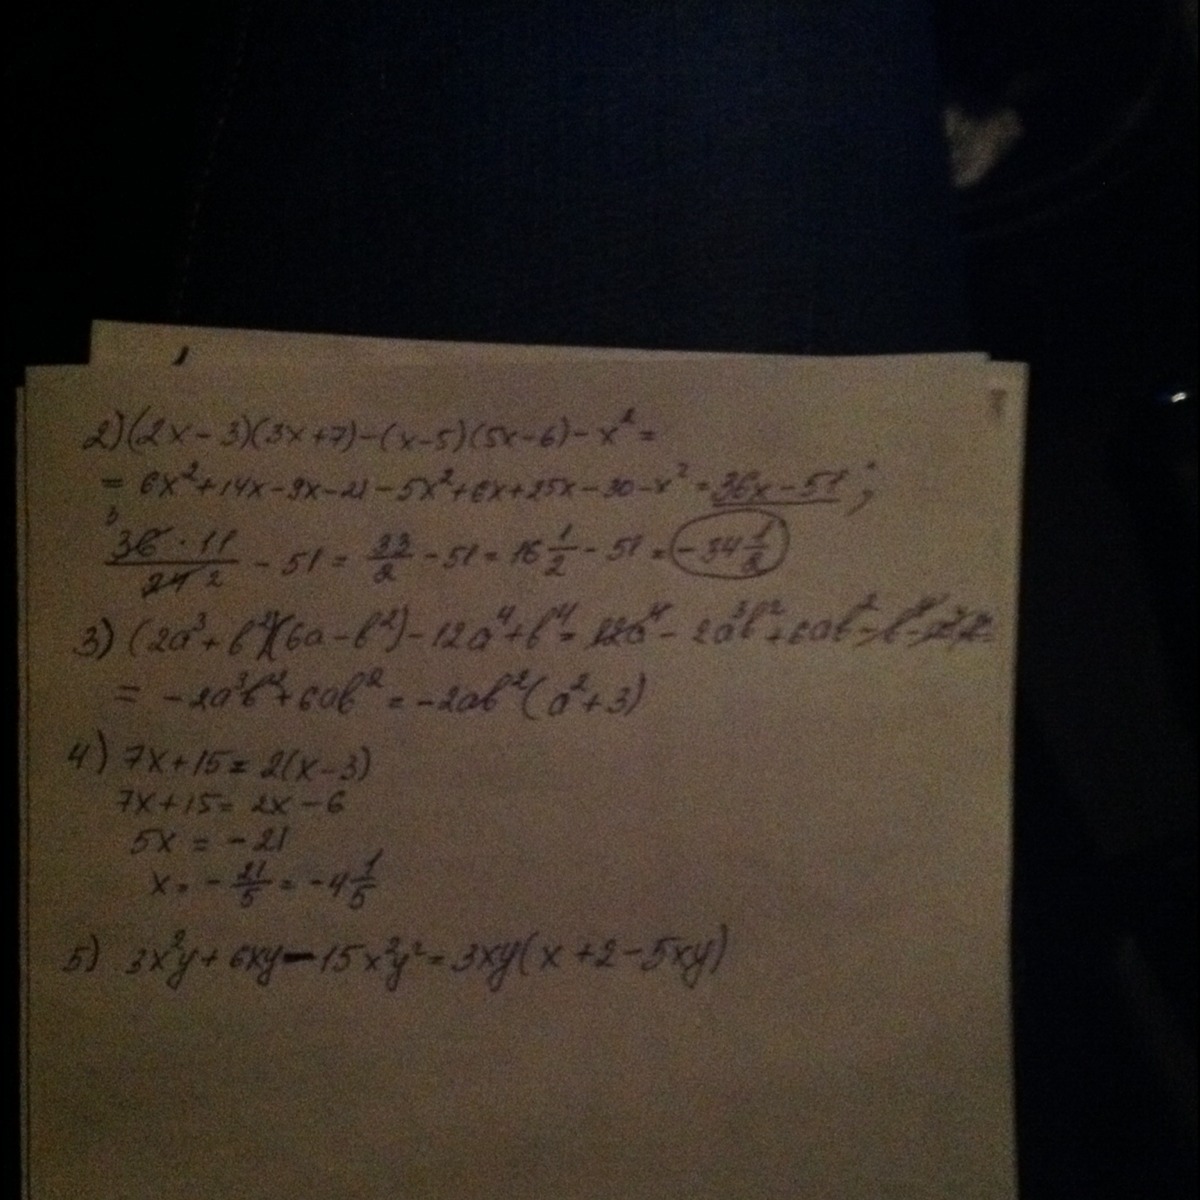 2) (2x - 3)(3x + 7) - (x - 5)(5x - 6) - x² =
= 6x² + 14x - 9x - 21 - 5x² + 6x + 25x - 30 - x² = 36x - 51;
3 36 · 11 / 24 2 - 51 = 33/2 - 51 = 16 1/2 - 51 = -34 1/2
3) (2a³ + b²)(6a - b²) - 12a⁴ + b⁴ = 12a⁴ - 2a³b² + 6ab² - b⁴
= -2a³b² + 6ab² = -2ab²(a² + 3)
4) 7x + 15 = 2(x - 3)
7x + 15 = 2x - 6
5x = -21
x = - 21/5 = -4 1/5
5) 3x²y + 6xy - 15x²y² = 3xy(x + 2 - 5xy)